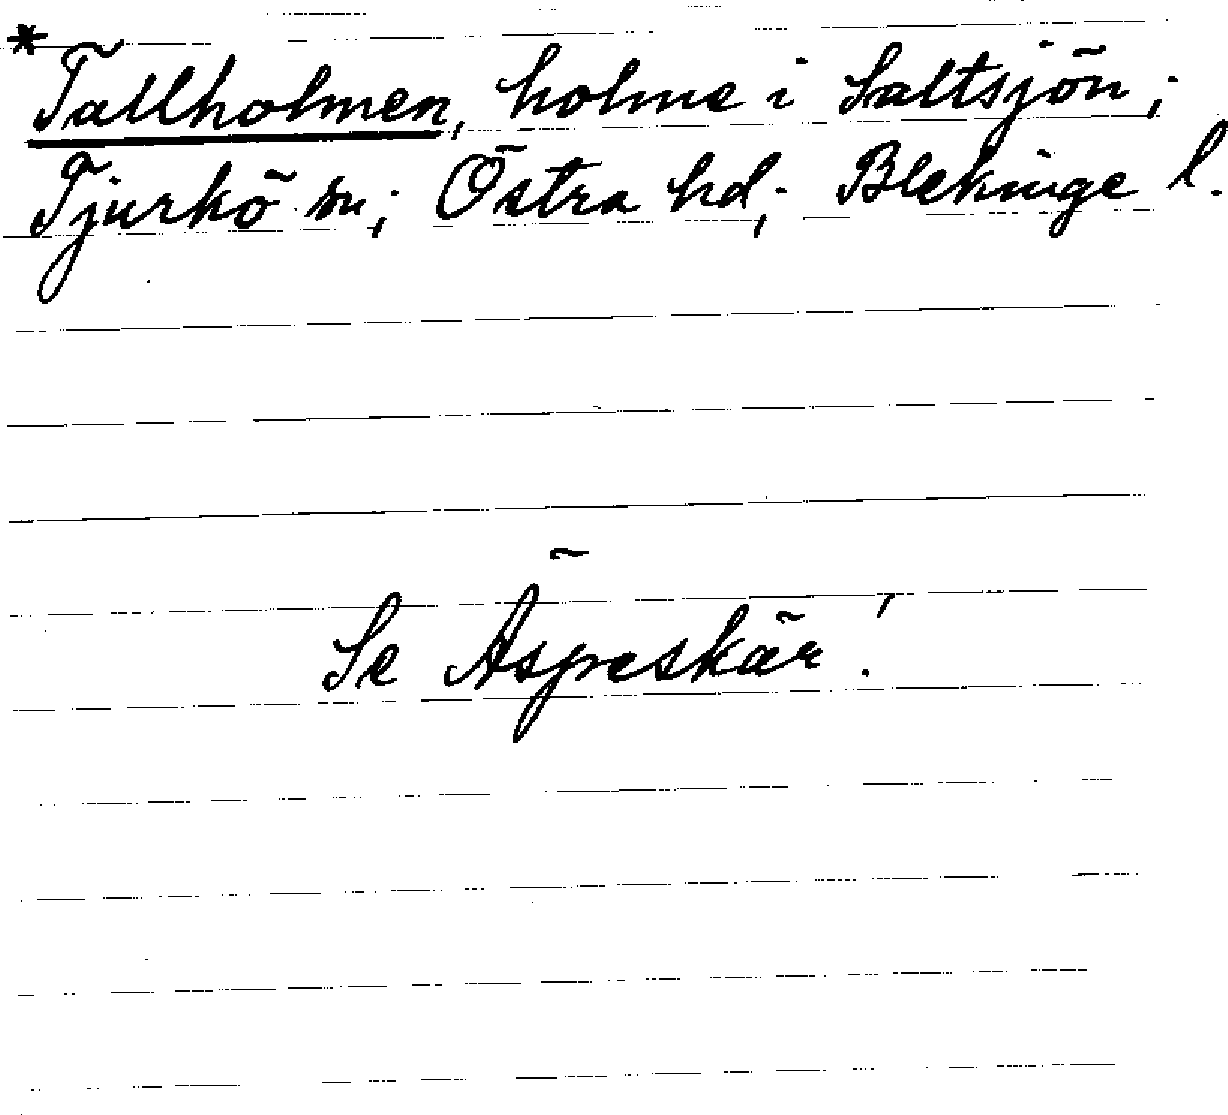 *
Tallholmen, holme i Saltsjön;
Tjurkö sn; Östra hd; Blekinge l.
Se Äspreskär!